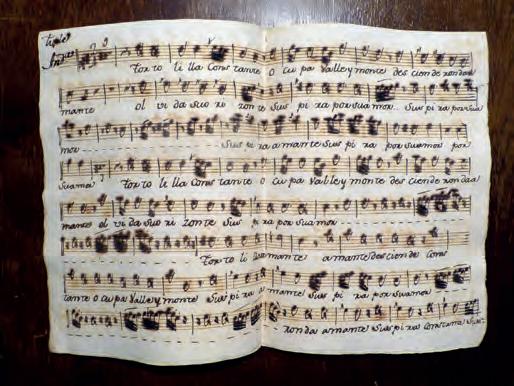 tiple
Andte
Tortolilla Constante o cupa Valle y monte desciende rondaa
mante olvida su orizonte suspira por su amor.. suspira por sua
mor suspira amante suspira por su amor por
suamor Tortolilla Constante o cupa Valle y monte desciende rondaa
mante olvida su orizonte suspira por su amor
Tortoli amante amante desciende Cons
tante o cupa Valle y monte suspira amante suspira por su amor
ronda amante suspira Constante sus